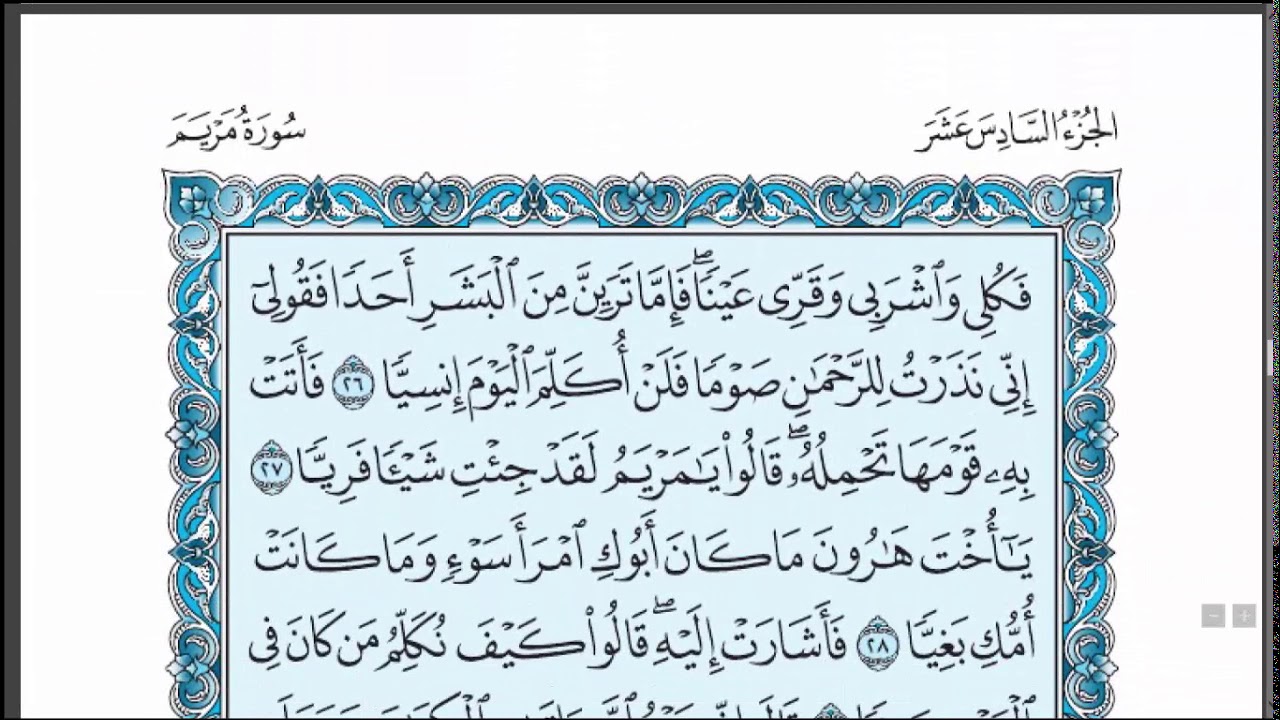 الجُزْءُ السَّادِسَ عَشَرَ
سُورَةُ مَرْيَمَ
فَكُلِي وَٱشْرَبِي وَقَرِّي عَيْنٗاۖ فَإِمَّا تَرَيِنَّ مِنَ ٱلْبَشَرِ أَحَدٗا فَقُولِيٓ
إِنِّي نَذَرْتُ لِلرَّحْمَٰنِ صَوْمٗا فَلَنْ أُكَلِّمَ ٱلْيَوْمَ إِنسِيّٗا ٢٦ فَأَتَتْ
بِهِۦ قَوْمَهَا تَحْمِلُهُۥۖ قَالُواْ يَٰمَرْيَمُ لَقَدْ جِئْتِ شَيْـٔٗا فَرِيّٗا ٢٧
يَٰٓأُخْتَ هَٰرُونَ مَا كَانَ أَبُوكِ ٱمْرَأَ سَوْءٖ وَمَا كَانَتْ
أُمُّكِ بَغِيّٗا ٢٨ فَأَشَارَتْ إِلَيْهِۖ قَالُواْ كَيْفَ نُكَلِّمُ مَن كَانَ فِي